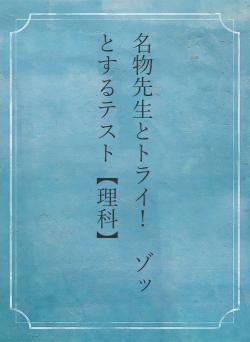 名物先生とトライ！　ゾッ
とするテスト【理科】